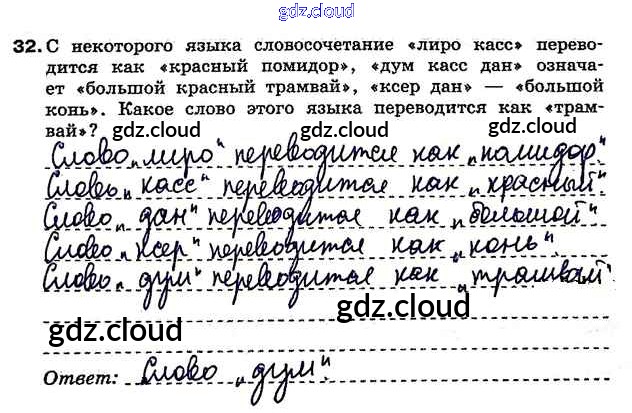 gdz.cloud
32. С некоторого языка словосочетание «лиро касс» перево-
дится как «красный помидор», «дум касс дан» означа-
ет «большой красный трамвай», «ксер дан» — «большой
конь». Какое слово этого языка переводится как «трам-
вай»?
gdz.cloud gdz.cloud
Слово „лиро“ переводится как „помидор“.
Слово „касс“ переводится как „красный“.
Слово „дан“ переводится как „большой“.
Слово „ксер“ переводится как „конь“.
Слово „дум“ переводится как „трамвай“
gdz.cloud
gdz.cloud gdz.cloud
Ответ: Слово „дум“.